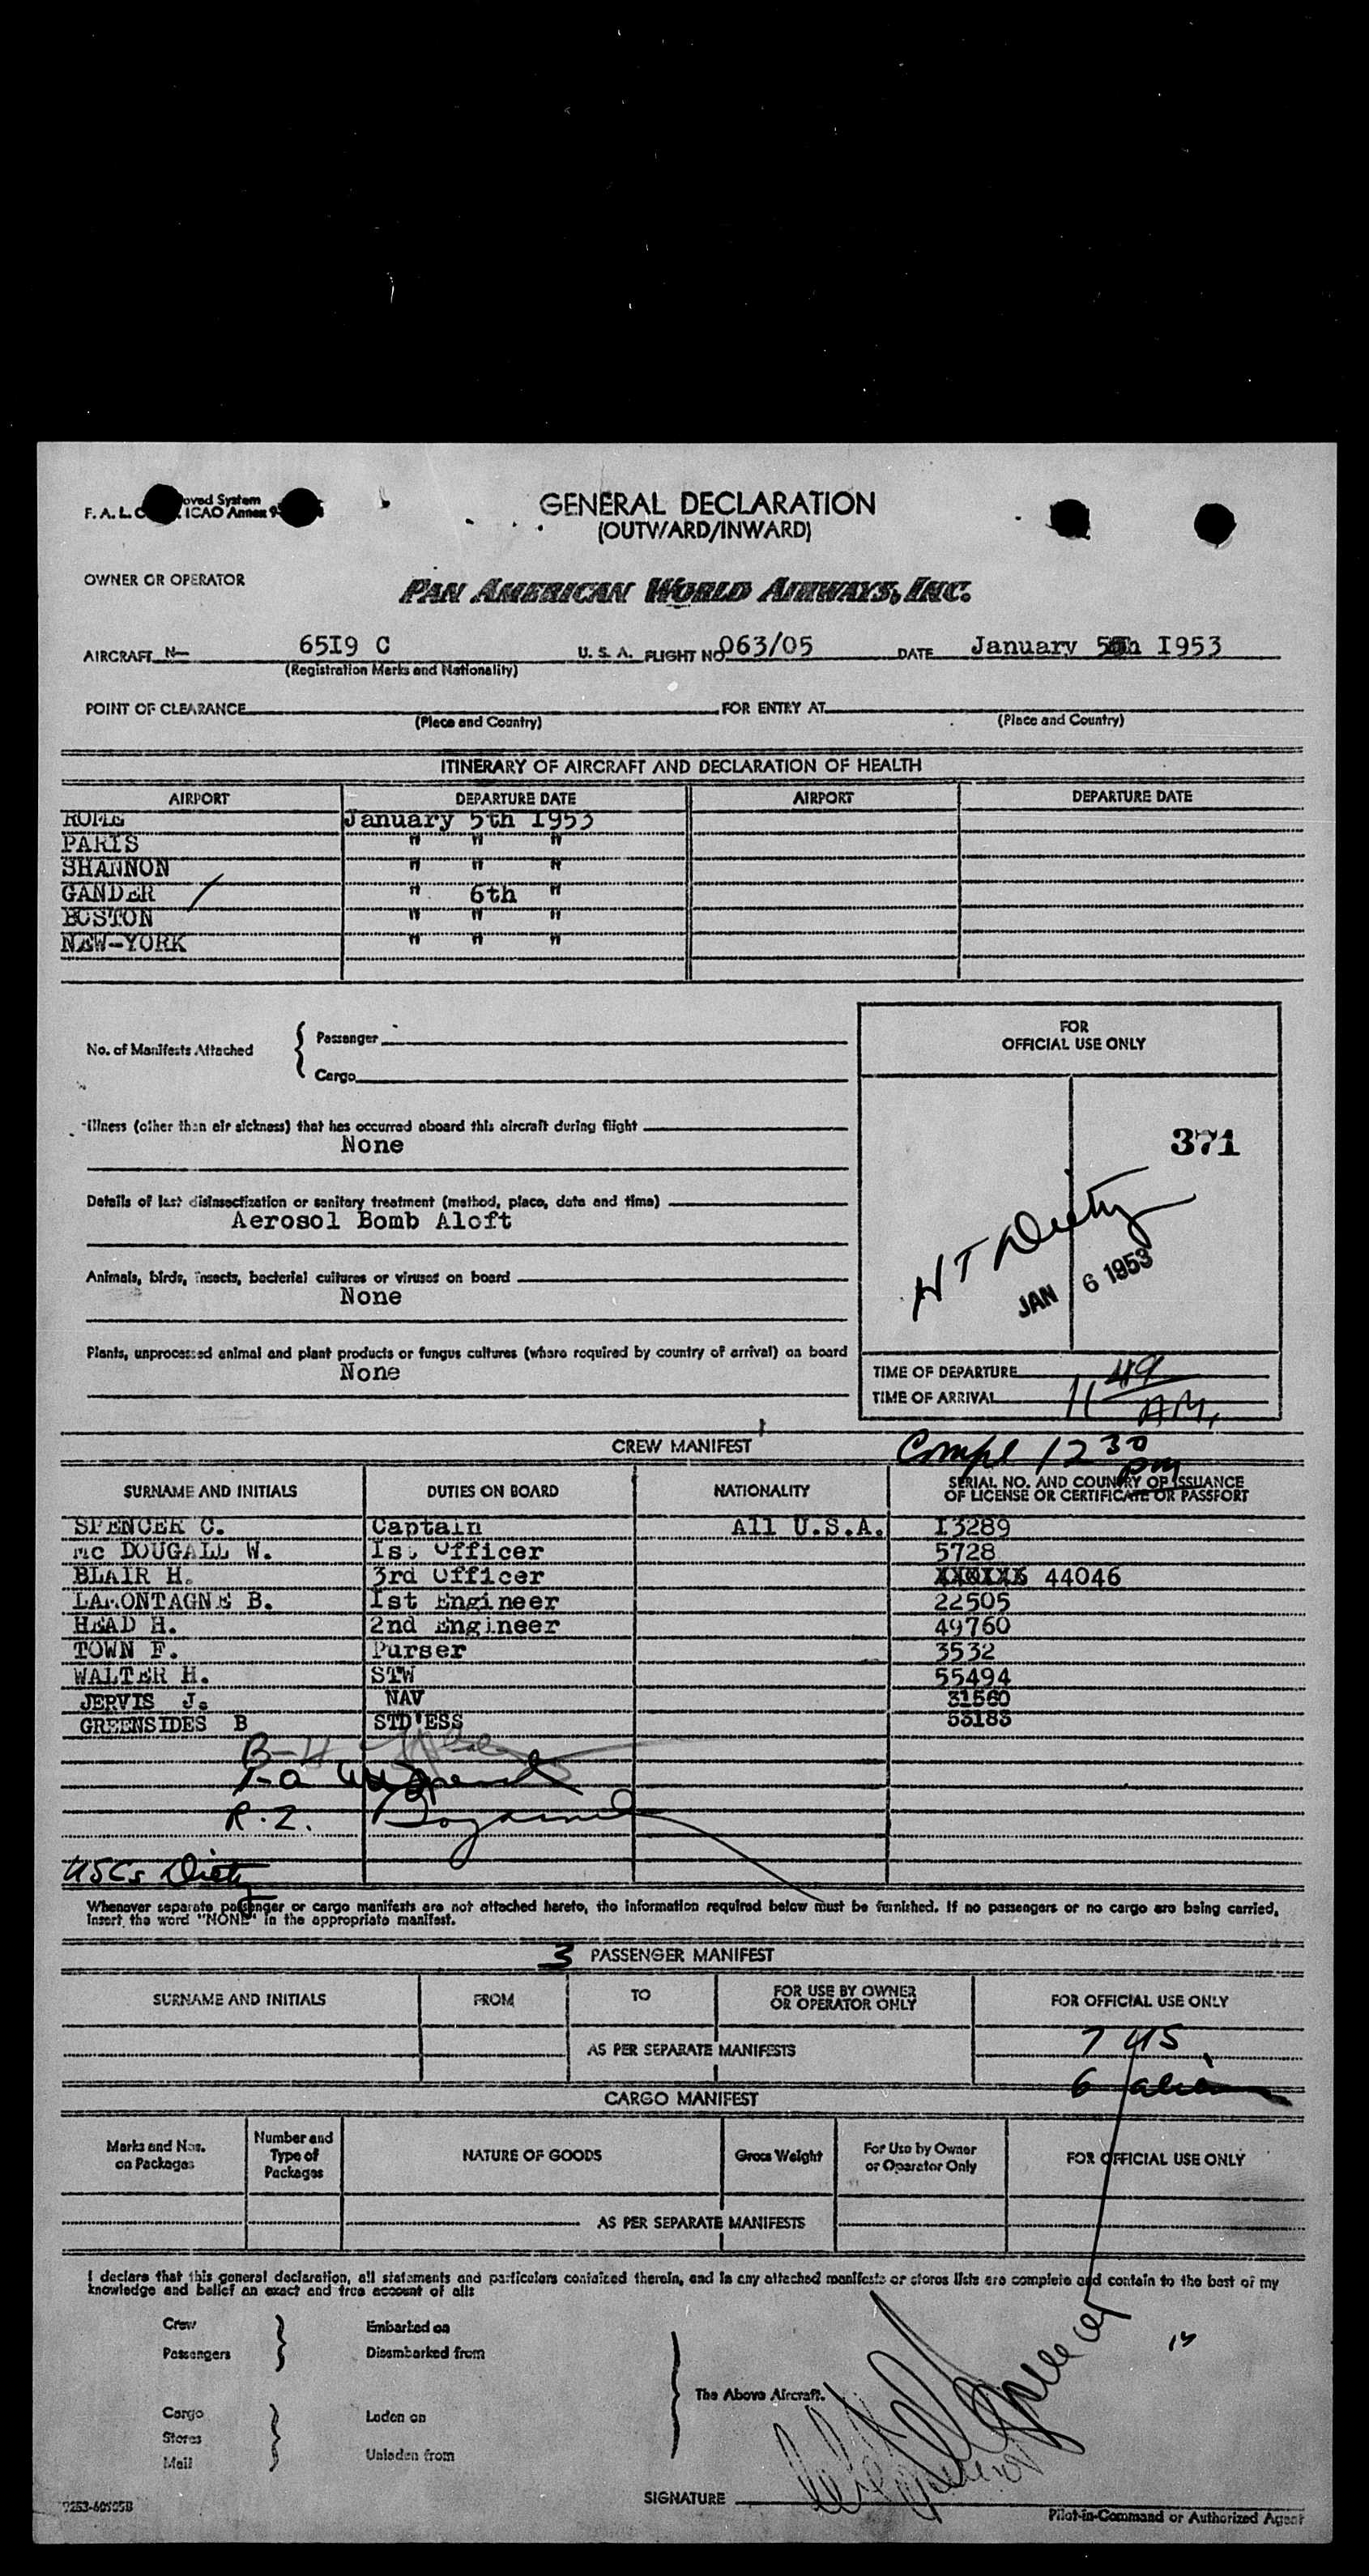 GENERAL DECLARATION
(OUTWARD/INWARD)
oved System
F. A. L. C ICAO Annex 9
OWNER OR OPERATOR
PAN AMERICAN WORLD AIRWAYS, INC.
AIRCRAFT N— 65I9 C U. S. A. FLIGHT NO 063/05 DATE January 5th I953
(Registration Marks and Nationality)
POINT OF CLEARANCE FOR ENTRY AT
(Place and Country) (Place and Country)
ITINERARY OF AIRCRAFT AND DECLARATION OF HEALTH
AIRPORT DEPARTURE DATE AIRPORT DEPARTURE DATE
ROME January 5th I953
PARIS " " "
SHANNON " " "
GANDER / " 6th "
BOSTON " " "
NEW-YORK " " "
No. of Manifests Attached { Passenger
Cargo
FOR
OFFICIAL USE ONLY
371
Illness (other than air sickness) that has occurred aboard this aircraft during flight
None
Details of last disinsectization or sanitary treatment (method, place, date and time)
Aerosol Bomb Aloft
H T Diety
JAN 6 1953
Animals, birds, insects, bacterial cultures or viruses on board
None
Plants, unprocessed animal and plant products or fungus cultures (where required by country of arrival) on board
None
TIME OF DEPARTURE
TIME OF ARRIVAL 11 49 AM.
CREW MANIFEST
Compl 12 30 pm
SURNAME AND INITIALS DUTIES ON BOARD NATIONALITY SERIAL NO. AND COUNTRY OF ISSUANCE
OF LICENSE OR CERTIFICATE OR PASSPORT
SPENCER C. Captain All U.S.A. I3289
mc DOUGALL W. Ist Officer 5728
BLAIR H. 3rd Officer 44046
LAMONTAGNE B. Ist Engineer 22505
HEAD H. 2nd Engineer 49760
TOWN F. Purser 3532
WALTER H. STW 55494
JERVIS J. NAV 31560
GREENSIDES B STD'ESS 53183
B-4
R.2.
USCs Diety
Whenever separate passenger or cargo manifests are not attached hereto, the information required below must be furnished. If no passengers or no cargo are being carried,
insert the word "NONE" in the appropriate manifest.
3 PASSENGER MANIFEST
SURNAME AND INITIALS FROM TO FOR USE BY OWNER
OR OPERATOR ONLY FOR OFFICIAL USE ONLY
7 US
AS PER SEPARATE MANIFESTS
6 alien
CARGO MANIFEST
Marks and Nos.
on Packages Number and
Type of
Packages NATURE OF GOODS Gross Weight For Use by Owner
or Operator Only FOR OFFICIAL USE ONLY
AS PER SEPARATE MANIFESTS
I declare that this general declaration, all statements and particulars contained therein, and in any attached manifests or stores lists are complete and contain to the best of my
knowledge and belief an exact and true account of all:
Crew Embarked on
Passengers Disembarked from
The Above Aircraft.
Cargo Laden on
Stores
Mail Unladen from
13
SIGNATURE
Pilot-in-Command or Authorized Agent